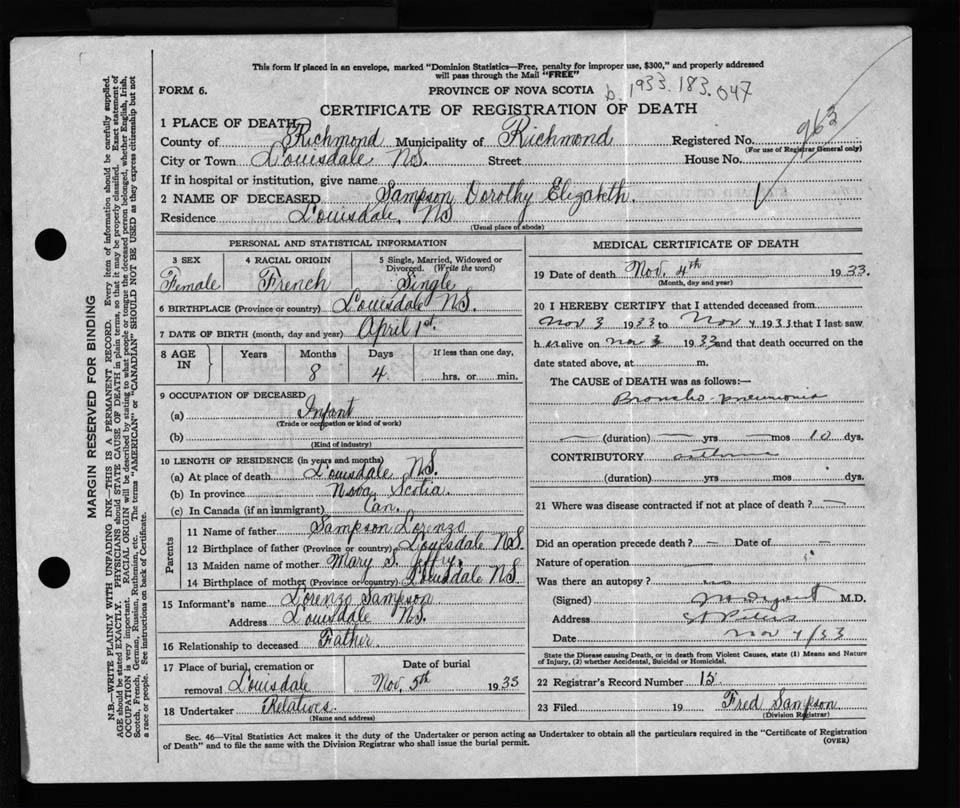 This form if placed in an envelope, marked "Dominion Statistics—Free, penalty for improper use, $300," and properly addressed
will pass through the Mail "FREE"
FORM 6.
PROVINCE OF NOVA SCOTIA
b. 1933.183.047
CERTIFICATE OF REGISTRATION OF DEATH
963
1 PLACE OF DEATH
County of Richmond Municipality of Richmond Registered No.
(For use of Registrar General only)
City or Town Louisdale N.S. Street House No.
If in hospital or institution, give name
2 NAME OF DECEASED Sampson Dorothy Elizabeth.
Residence Louisdale, NS
(Usual place of abode)
PERSONAL AND STATISTICAL INFORMATION
3 SEX 4 RACIAL ORIGIN 5 Single, Married, Widowed or
Divorced. (Write the word)
Female French Single
6 BIRTHPLACE (Province or country) Louisdale NS.
7 DATE OF BIRTH (month, day and year) April 1st.
8 AGE IN Years Months Days If less than one day,
8 4 hrs. or min.
9 OCCUPATION OF DECEASED
(a) Infant
(Trade or occupation or kind of work)
(b)
(Kind of industry)
10 LENGTH OF RESIDENCE (in years and months)
(a) At place of death Louisdale NS.
(b) In province Nova Scotia.
(c) In Canada (if an immigrant) Can.
Parents
11 Name of father Sampson Lorenzo
12 Birthplace of father (Province or country) Louisdale NS.
13 Maiden name of mother Mary S.
14 Birthplace of mother (Province or country) Louisdale NS.
15 Informant's name Lorenzo Sampson
Address Louisdale NS.
16 Relationship to deceased Father
17 Place of burial, cremation or Date of burial
removal Louisdale Nov. 5th 1933
18 Undertaker Relatives.
(Name and address)
MEDICAL CERTIFICATE OF DEATH
19 Date of death Nov. 4th 1933.
(Month, day and year)
20 I HEREBY CERTIFY that I attended deceased from
Nov 3 1933 to Nov 4 1933 that I last saw
h er alive on Nov 3 1933 and that death occurred on the
date stated above, at m.
The CAUSE OF DEATH was as follows:—
Broncho-pneumonia
— (duration) — yrs — mos 10 dys.
CONTRIBUTORY asthma
(duration) yrs mos dys.
21 Where was disease contracted if not at place of death? —
Did an operation precede death? — Date of —
Nature of operation —
Was there an autopsy? no
(Signed) M.D.
Address St Peters
Date Nov 4/33
State the Disease causing Death, or in death from Violent Causes, state (1) Means and Nature
of Injury, (2) whether Accidental, Suicidal or Homicidal.
22 Registrar's Record Number 15
23 Filed 19 Fred Sampson
(Division Registrar)
Sec. 46—Vital Statistics Act makes it the duty of the Undertaker or person acting as Undertaker to obtain all the particulars required in the "Certificate of Registration
of Death" and to file the same with the Division Registrar who shall issue the burial permit.
(OVER)
MARGIN RESERVED FOR BINDING
N.B.—WRITE PLAINLY WITH UNFADING INK—THIS IS A PERMANENT RECORD. Every item of information should be carefully supplied.
AGE should be stated EXACTLY. PHYSICIANS should STATE CAUSE OF DEATH in plain terms, so that it may be properly classified. Exact statement of
OCCUPATION is very important. RACIAL ORIGIN will be described by stating to what people or tongue the deceased person belonged, whether English, Irish,
Scotch, French, German, Russian, Ruthenian, etc. The terms "AMERICAN" or "CANADIAN" SHOULD NOT BE USED as they express citizenship but not
a race or people. See instructions on back of Certificate.